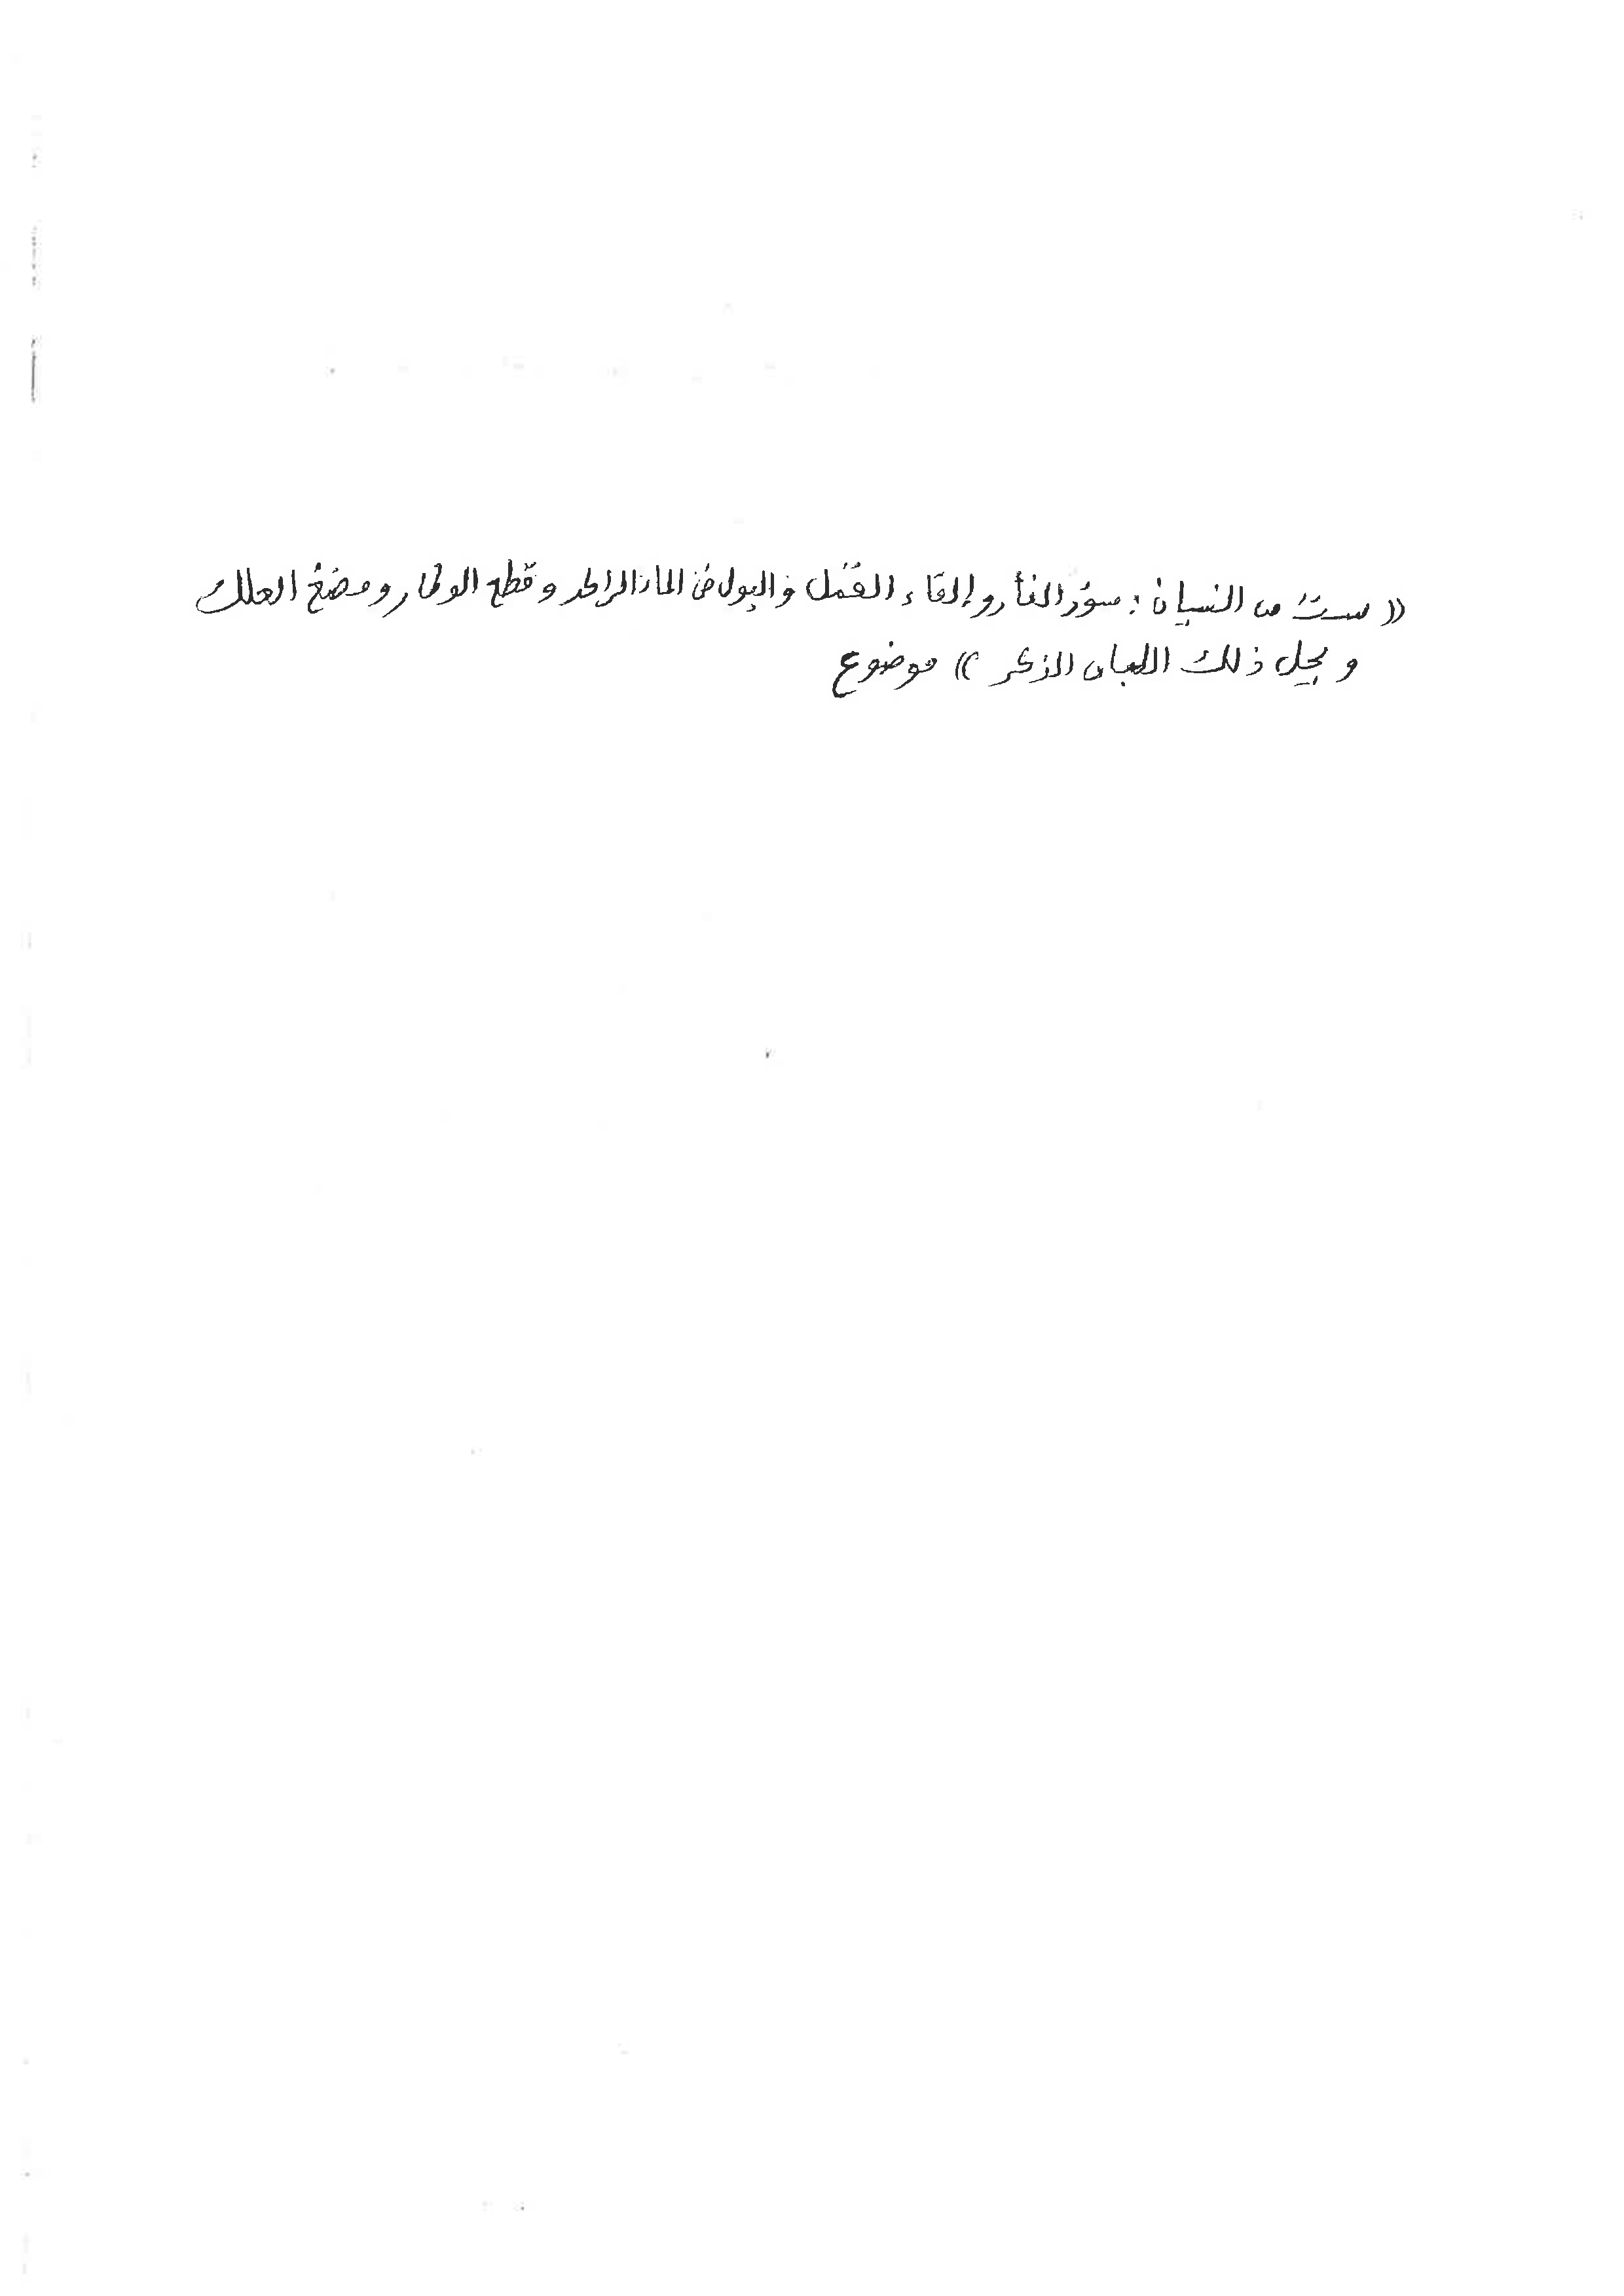 (( ست من النسيان : سؤر الفأر و إلقاء القمل و البول في الماء الراكد و قطع القطار و مضغ العلك
و يحل ذلك اللبان الذكر )) موضوع